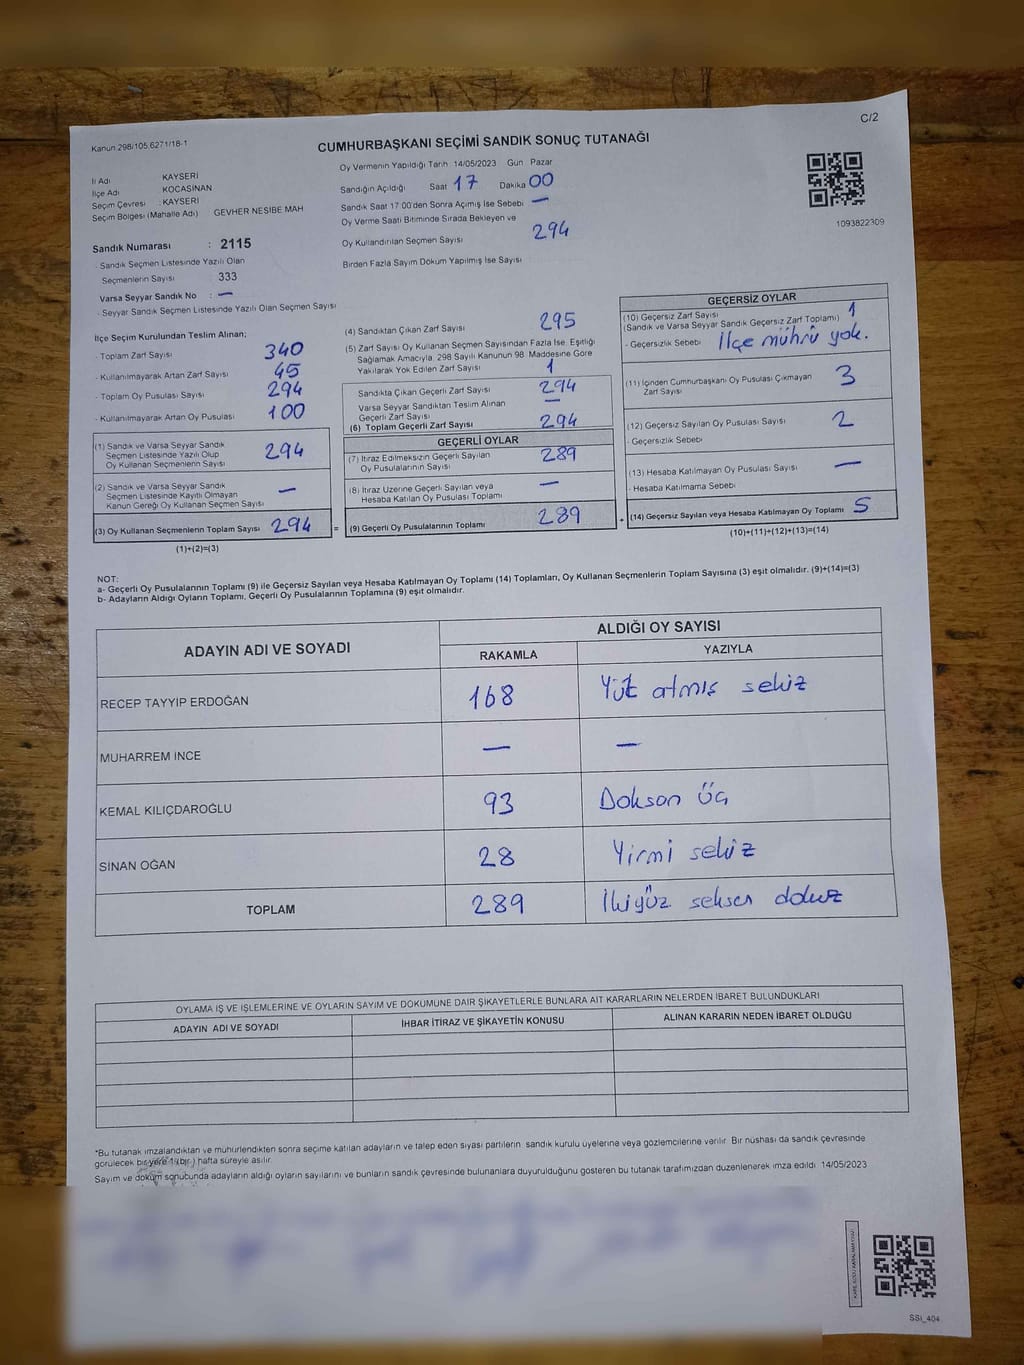 C/2
Kanun 298/105.6271/18-1
CUMHURBAŞKANI SEÇİMİ SANDIK SONUÇ TUTANAĞI
İl Adı KAYSERİ
İlçe Adı KOCASİNAN
Seçim Çevresi : KAYSERİ
Seçim Bölgesi (Mahalle Adı) GEVHER NESİBE MAH
Oy Vermenin Yapıldığı Tarih 14/05/2023 Gün Pazar
Sandığın Açıldığı Saat 17 Dakika 00
Sandık Saat 17:00'den Sonra Açımış İse Sebebi —
Oy Verme Saati Bitiminde Sırada Bekleyen ve
Oy Kullandırılan Seçmen Sayısı 294
Birden Fazla Sayım Döküm Yapılmış İse Sayısı
1093822309
Sandık Numarası : 2115
- Sandık Seçmen Listesinde Yazılı Olan
Seçmenlerin Sayısı 333
Varsa Seyyar Sandık No : —
- Seyyar Sandık Seçmen Listesinde Yazılı Olan Seçmen Sayısı
İlçe Seçim Kurulundan Teslim Alınan;
- Toplam Zarf Sayısı 340
- Kullanılmayarak Artan Zarf Sayısı 45
- Toplam Oy Pusulası Sayısı 294
- Kullanılmayarak Artan Oy Pusulası 100
(1) Sandık ve Varsa Seyyar Sandık
Seçmen Listesinde Yazılı Olup
Oy Kullanan Seçmenlerin Sayısı 294
(2) Sandık ve Varsa Seyyar Sandık
Seçmen Listesinde Kayıtlı Olmayan
Kanun Gereği Oy Kullanan Seçmen Sayısı —
(3) Oy Kullanan Seçmenlerin Toplam Sayısı 294
(1)+(2)=(3)
(4) Sandıktan Çıkan Zarf Sayısı 295
(5) Zarf Sayısı Oy Kullanan Seçmen Sayısından Fazla İse, Eşitliği
Sağlamak Amacıyla, 298 Sayılı Kanunun 98. Maddesine Göre
Yakılarak Yok Edilen Zarf Sayısı 1
Sandıkta Çıkan Geçerli Zarf Sayısı 294
Varsa Seyyar Sandıktan Teslim Alınan
Geçerli Zarf Sayısı —
(6) Toplam Geçerli Zarf Sayısı 294
GEÇERLİ OYLAR
(7) İtiraz Edilmeksizin Geçerli Sayılan
Oy Pusulalarının Sayısı 289
(8) İtiraz Üzerine Geçerli Sayılan veya
Hesaba Katılan Oy Pusulası Toplamı —
= (9) Geçerli Oy Pusulalarının Toplamı 289
GEÇERSİZ OYLAR
(10) Geçersiz Zarf Sayısı
(Sandık ve Varsa Seyyar Sandık Geçersiz Zarf Toplamı) 1
- Geçersizlik Sebebi İlçe mührü yok.
(11) İçinden Cumhurbaşkanı Oy Pusulası Çıkmayan
Zarf Sayısı 3
(12) Geçersiz Sayılan Oy Pusulası Sayısı 2
- Geçersizlik Sebebi
(13) Hesaba Katılmayan Oy Pusulası Sayısı —
- Hesaba Katılmama Sebebi
+ (14) Geçersiz Sayılan veya Hesaba Katılmayan Oy Toplamı 5
(10)+(11)+(12)+(13)=(14)
NOT:
a- Geçerli Oy Pusulalarının Toplamı (9) ile Geçersiz Sayılan veya Hesaba Katılmayan Oy Toplamı (14) Toplamları, Oy Kullanan Seçmenlerin Toplam Sayısına (3) eşit olmalıdır. (9)+(14)=(3)
b- Adayların Aldığı Oyların Toplamı, Geçerli Oy Pusulalarının Toplamına (9) eşit olmalıdır.
ADAYIN ADI VE SOYADI ALDIĞI OY SAYISI
RAKAMLA YAZIYLA
RECEP TAYYİP ERDOĞAN 168 Yüz atmış sekiz
MUHARREM İNCE — —
KEMAL KILIÇDAROĞLU 93 Dokson Üç
SİNAN OĞAN 28 Yirmi sekiz
TOPLAM 289 İkiyüz seksen dokuz
OYLAMA İŞ VE İŞLEMLERİNE VE OYLARIN SAYIM VE DÖKÜMÜNE DAİR ŞİKAYETLERLE BUNLARA AİT KARARLARIN NELERDEN İBARET BULUNDUKLARI
ADAYIN ADI VE SOYADI İHBAR İTİRAZ VE ŞİKAYETİN KONUSU ALINAN KARARIN NEDEN İBARET OLDUĞU
*Bu tutanak imzalandıktan ve mühürlendikten sonra seçime katılan adayların ve talep eden siyasi partilerin sandık kurulu üyelerine veya gözlemcilerine verilir. Bir nüshası da sandık çevresinde
görülecek bir yere 1 (bir) hafta süreyle asılır.
Sayım ve döküm sonucunda adayların aldığı oyların sayılarını ve bunların sandık çevresinde bulunanlara duyurulduğunu gösteren bu tutanak tarafımızdan düzenlenerek imza edildi. 14/05/2023
SSİ_404